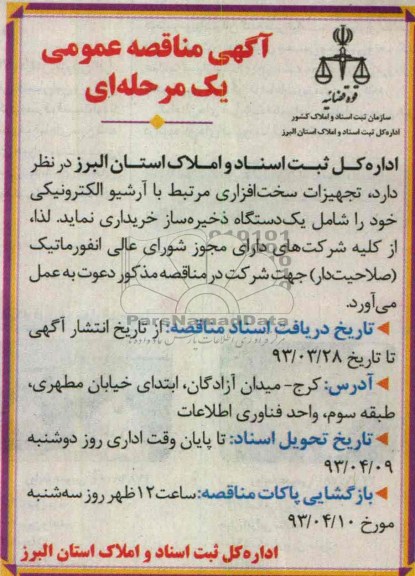 آگهی مناقصه عمومی
یک مرحله‌ای
قوه قضائیه
سازمان ثبت اسناد و املاک کشور
اداره کل ثبت اسناد و املاک استان البرز
اداره کل ثبت اسناد و املاک استان البرز در نظر
دارد، تجهیزات سخت‌افزاری مرتبط با آرشیو الکترونیکی
خود را شامل یک‌دستگاه ذخیره‌ساز خریداری نماید. لذا،
از کلیه شرکت‌های دارای مجوز شورای عالی انفورماتیک
(صلاحیت‌دار) جهت شرکت در مناقصه مذکور دعوت به عمل
می‌آورد.
ParsNamadData
تاریخ دریافت اسناد مناقصه: از تاریخ انتشار آگهی
تا تاریخ ۹۳/۰۳/۲۸
آدرس: کرج- میدان آزادگان، ابتدای خیابان مطهری،
طبقه سوم، واحد فناوری اطلاعات
تاریخ تحویل اسناد: تا پایان وقت اداری روز دوشنبه
۹۳/۰۴/۰۹
بازگشایی پاکات مناقصه: ساعت ۱۲ ظهر روز سه‌شنبه
مورخ ۹۳/۰۴/۱۰
اداره کل ثبت اسناد و املاک استان البرز